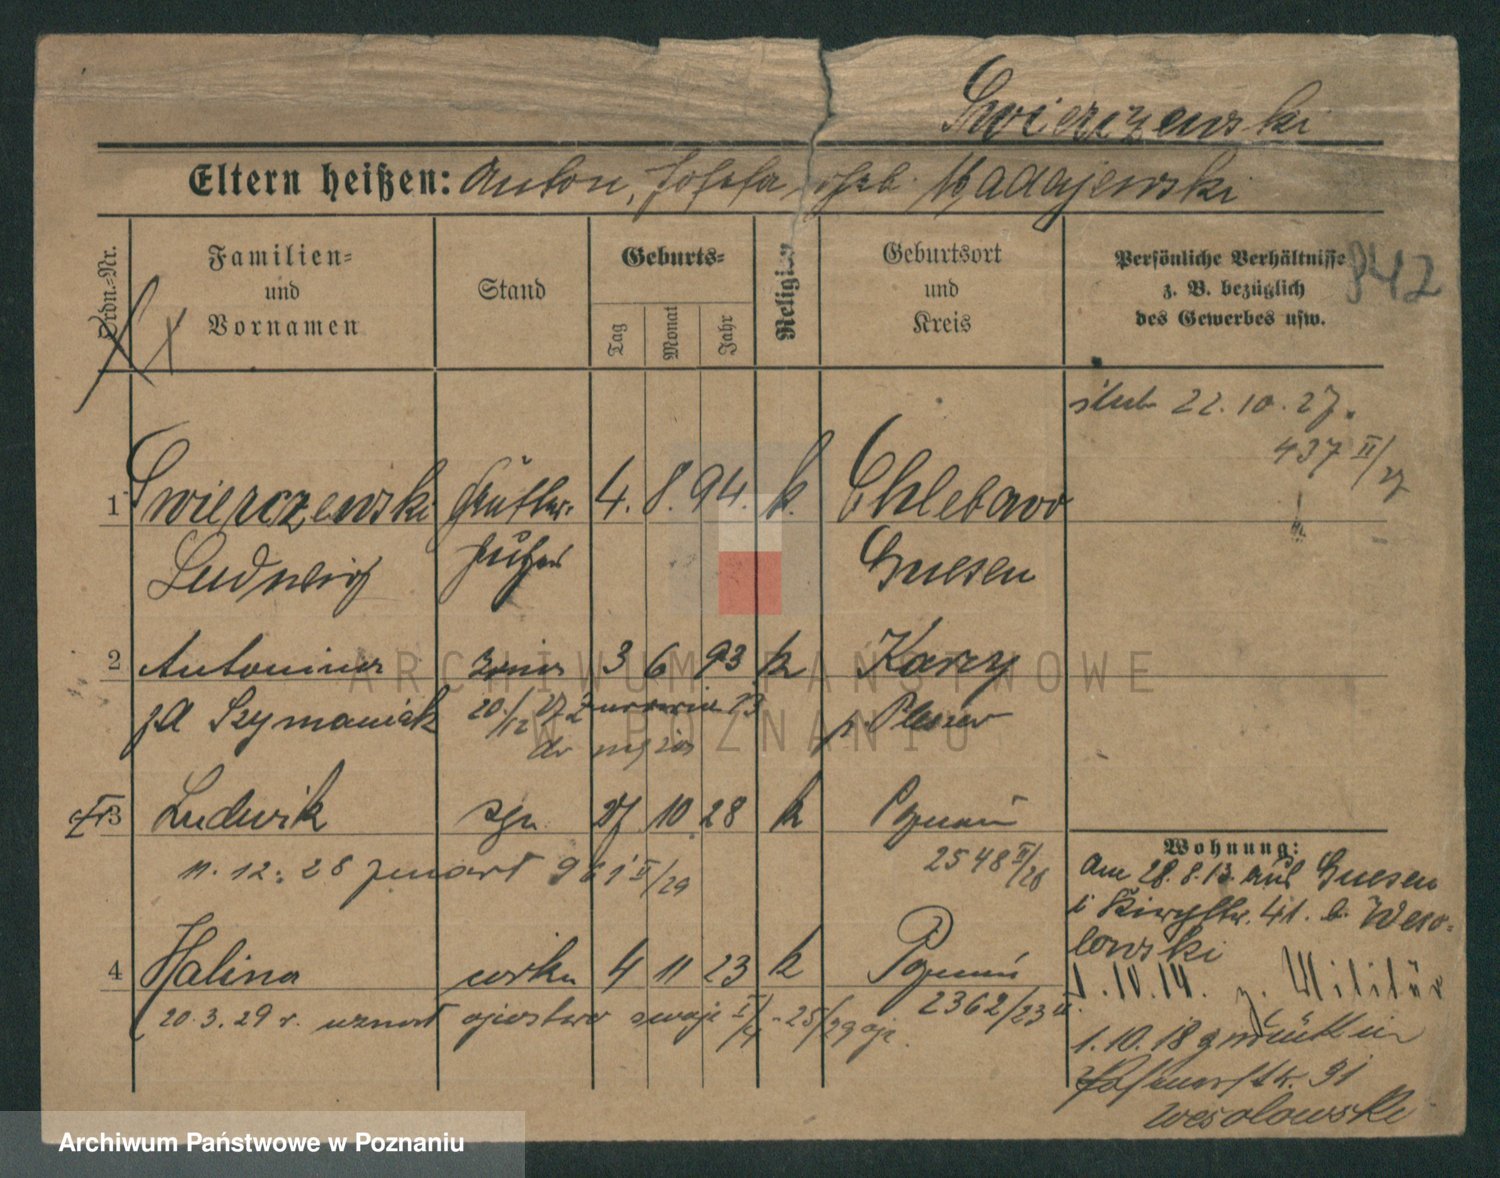 Swierczewski
Eltern heißen: Anton, Josefa, geb. Madajewski
Ordn.-Nr.
Familien-
und
Vornamen
Stand
Geburts-
Tag
Monat
Jahr
Religion
Geburtsort
und
Kreis
Persönliche Verhältnisse
z. B. bezüglich
des Gewerbes usw.
942
ślub 22.10.27.
437 II/27
1 Swierczewski 4. 8. 94. k. Chlebowo
Ludwig Gnesen
2 Antonina żona 3 6 93 k Karzy
zd Szymaniak 20/12 27 p Pleszew
3 Ludwik syn 27 10 28 k Poznań
11.12.28 zmarł 961 II/29 2548 II/28
4 Halina córka 4 11 23 k Poznań
20.3.29 r. uznał ojcostwo swoje 2362/23 II.
Wohnung:
Am 28.8.13 aus Gnesen
41. b. Weso-
lowski
1.10.14. z. Militär
1.10.18 zurück in
31
Wesolowski
ARCHIWUM PAŃSTWOWE
W POZNANIU
Archiwum Państwowe w Poznaniu